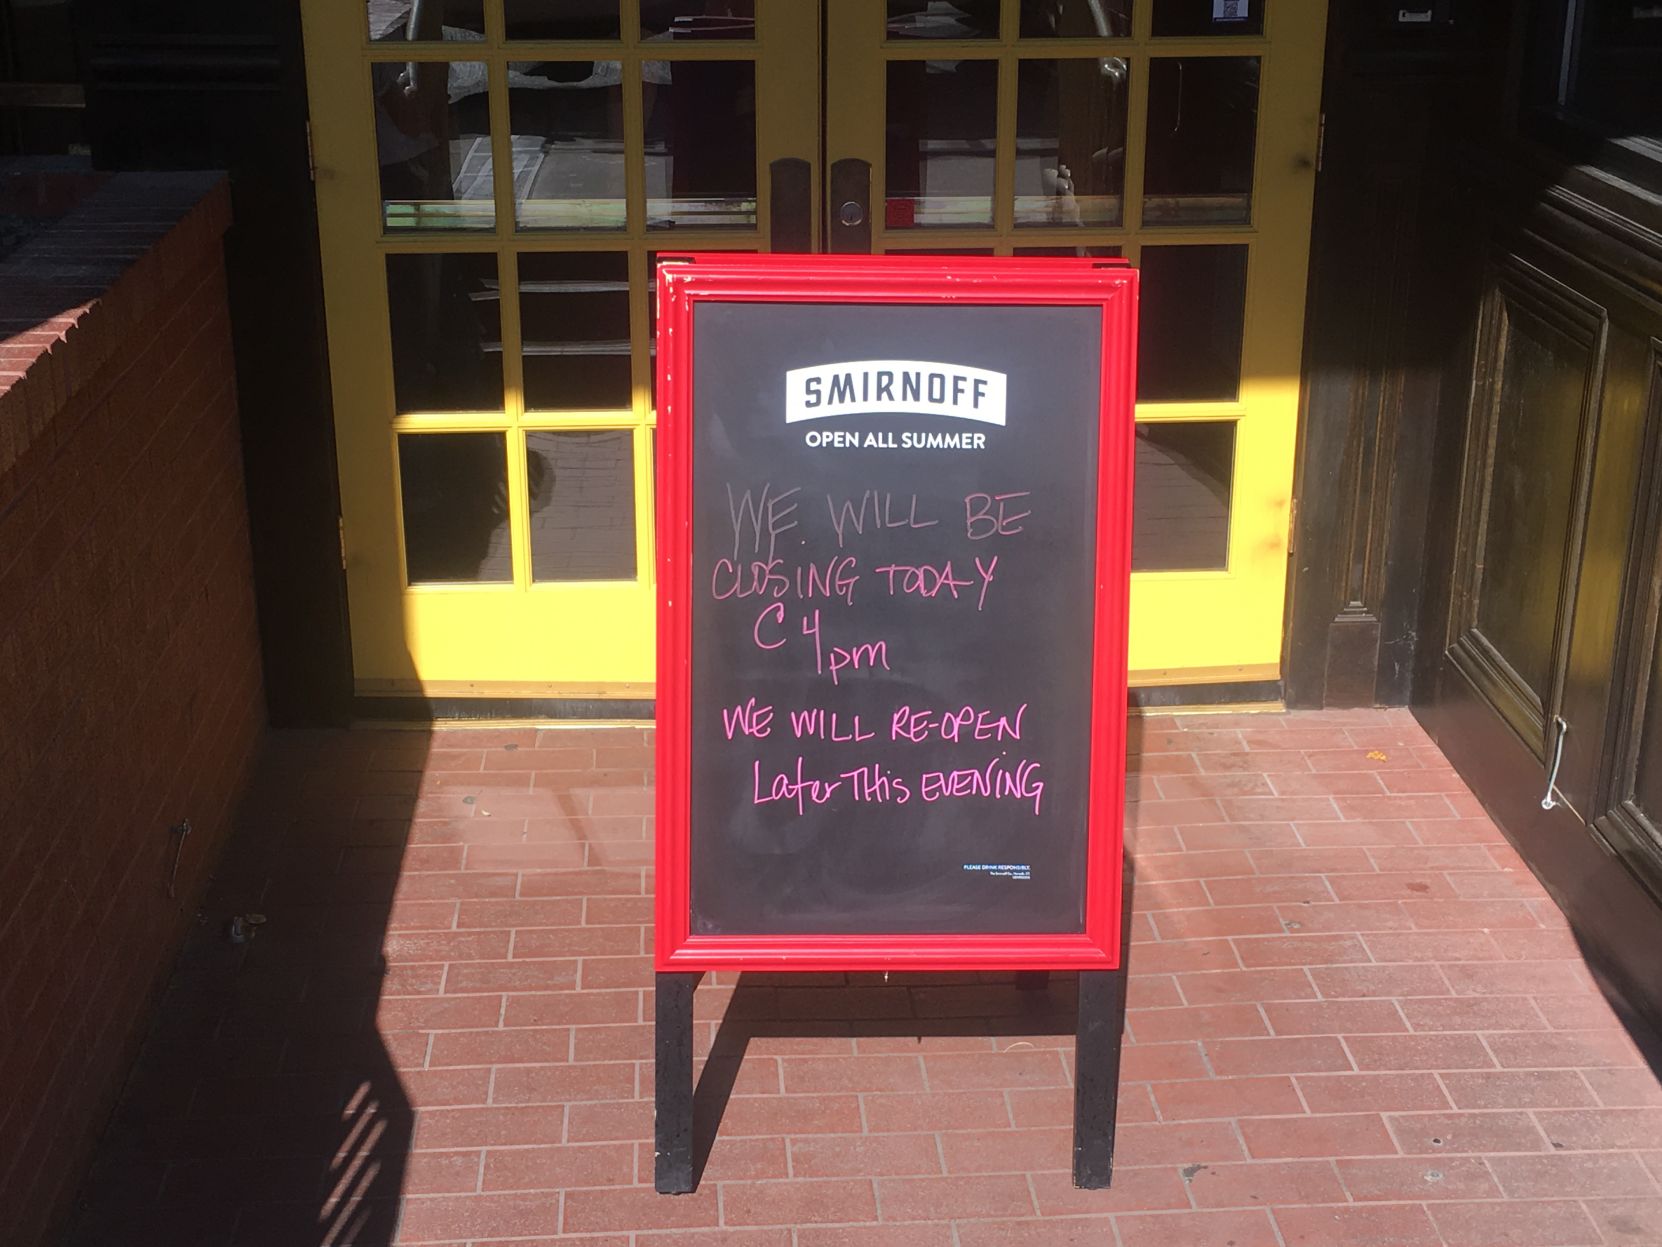 SMIRNOFF
OPEN ALL SUMMER
WE WILL BE
CLOSING TODAY
C 4pm
WE WILL RE-OPEN
Later THis EVENING
PLEASE DRINK RESPONSIBLY.